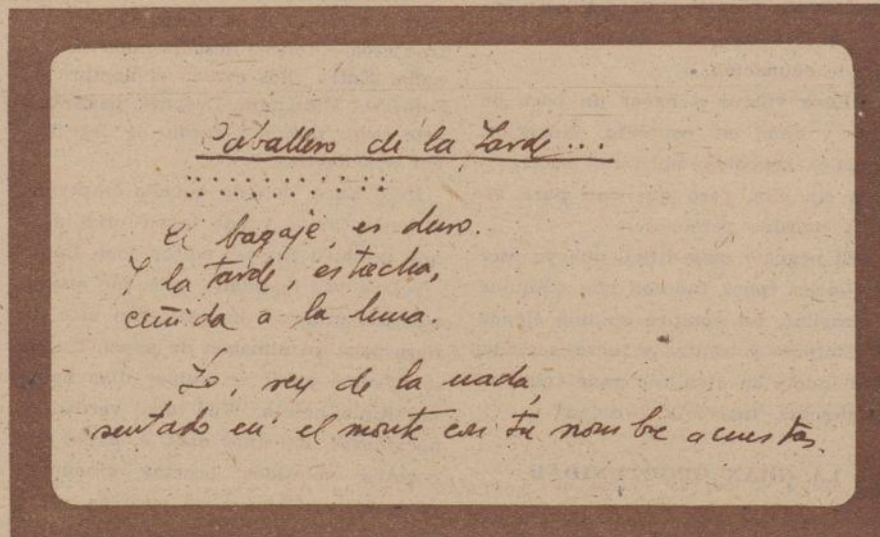 Caballero de la Tarde...
El bagaje, es duro.
Y la tarde, estrecha,
ceñida a la luna.
Yo, rey de la nada,
sentado en el monte con tu nombre a cuestas.